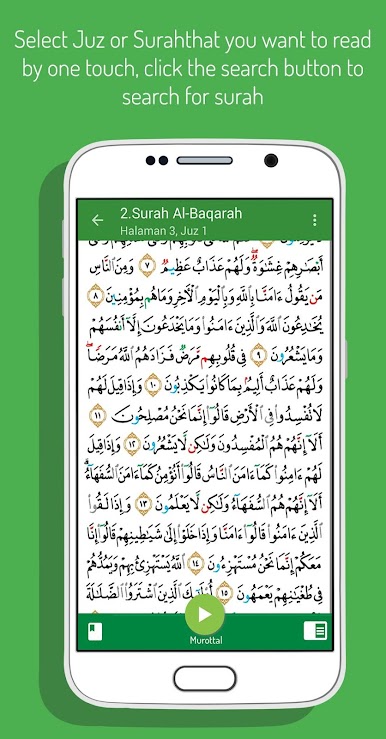 Select Juz or Surahthat you want to read
by one touch, click the search button to
search for surah
2.Surah Al-Baqarah
Halaman 3, Juz 1
أَبْصَٰرِهِمْ غِشَٰوَةٌ ۖ وَلَهُمْ عَذَابٌ عَظِيمٌ ٧ وَمِنَ ٱلنَّاسِ
مَن يَقُولُ ءَامَنَّا بِٱللَّهِ وَبِٱلْيَوْمِ ٱلْءَاخِرِ وَمَا هُم بِمُؤْمِنِينَ ٨
يُخَٰدِعُونَ ٱللَّهَ وَٱلَّذِينَ ءَامَنُوا۟ وَمَا يَخْدَعُونَ إِلَّآ أَنفُسَهُمْ
وَمَا يَشْعُرُونَ ٩ فِى قُلُوبِهِم مَّرَضٌ فَزَادَهُمُ ٱللَّهُ مَرَضًا ۖ
وَلَهُمْ عَذَابٌ أَلِيمٌۢ بِمَا كَانُوا۟ يَكْذِبُونَ ١٠ وَإِذَا قِيلَ لَهُمْ
لَا تُفْسِدُوا۟ فِى ٱلْأَرْضِ قَالُوٓا۟ إِنَّمَا نَحْنُ مُصْلِحُونَ ١١
أَلَآ إِنَّهُمْ هُمُ ٱلْمُفْسِدُونَ وَلَٰكِن لَّا يَشْعُرُونَ ١٢ وَإِذَا قِيلَ
لَهُمْ ءَامِنُوا۟ كَمَآ ءَامَنَ ٱلنَّاسُ قَالُوٓا۟ أَنُؤْمِنُ كَمَآ ءَامَنَ ٱلسُّفَهَآءُ ۗ
أَلَآ إِنَّهُمْ هُمُ ٱلسُّفَهَآءُ وَلَٰكِن لَّا يَعْلَمُونَ ١٣ وَإِذَا لَقُوا۟
ٱلَّذِينَ ءَامَنُوا۟ قَالُوٓا۟ ءَامَنَّا وَإِذَا خَلَوْا۟ إِلَىٰ شَيَٰطِينِهِمْ قَالُوٓا۟ إِنَّا
مَعَكُمْ إِنَّمَا نَحْنُ مُسْتَهْزِءُونَ ١٤ ٱللَّهُ يَسْتَهْزِئُ بِهِمْ وَيَمُدُّهُمْ
فِى طُغْيَٰنِهِمْ يَعْمَهُونَ ١٥ أُو۟لَٰٓئِكَ ٱلَّذِينَ ٱشْتَرَوُا۟ ٱلضَّلَٰلَةَ
Murottal